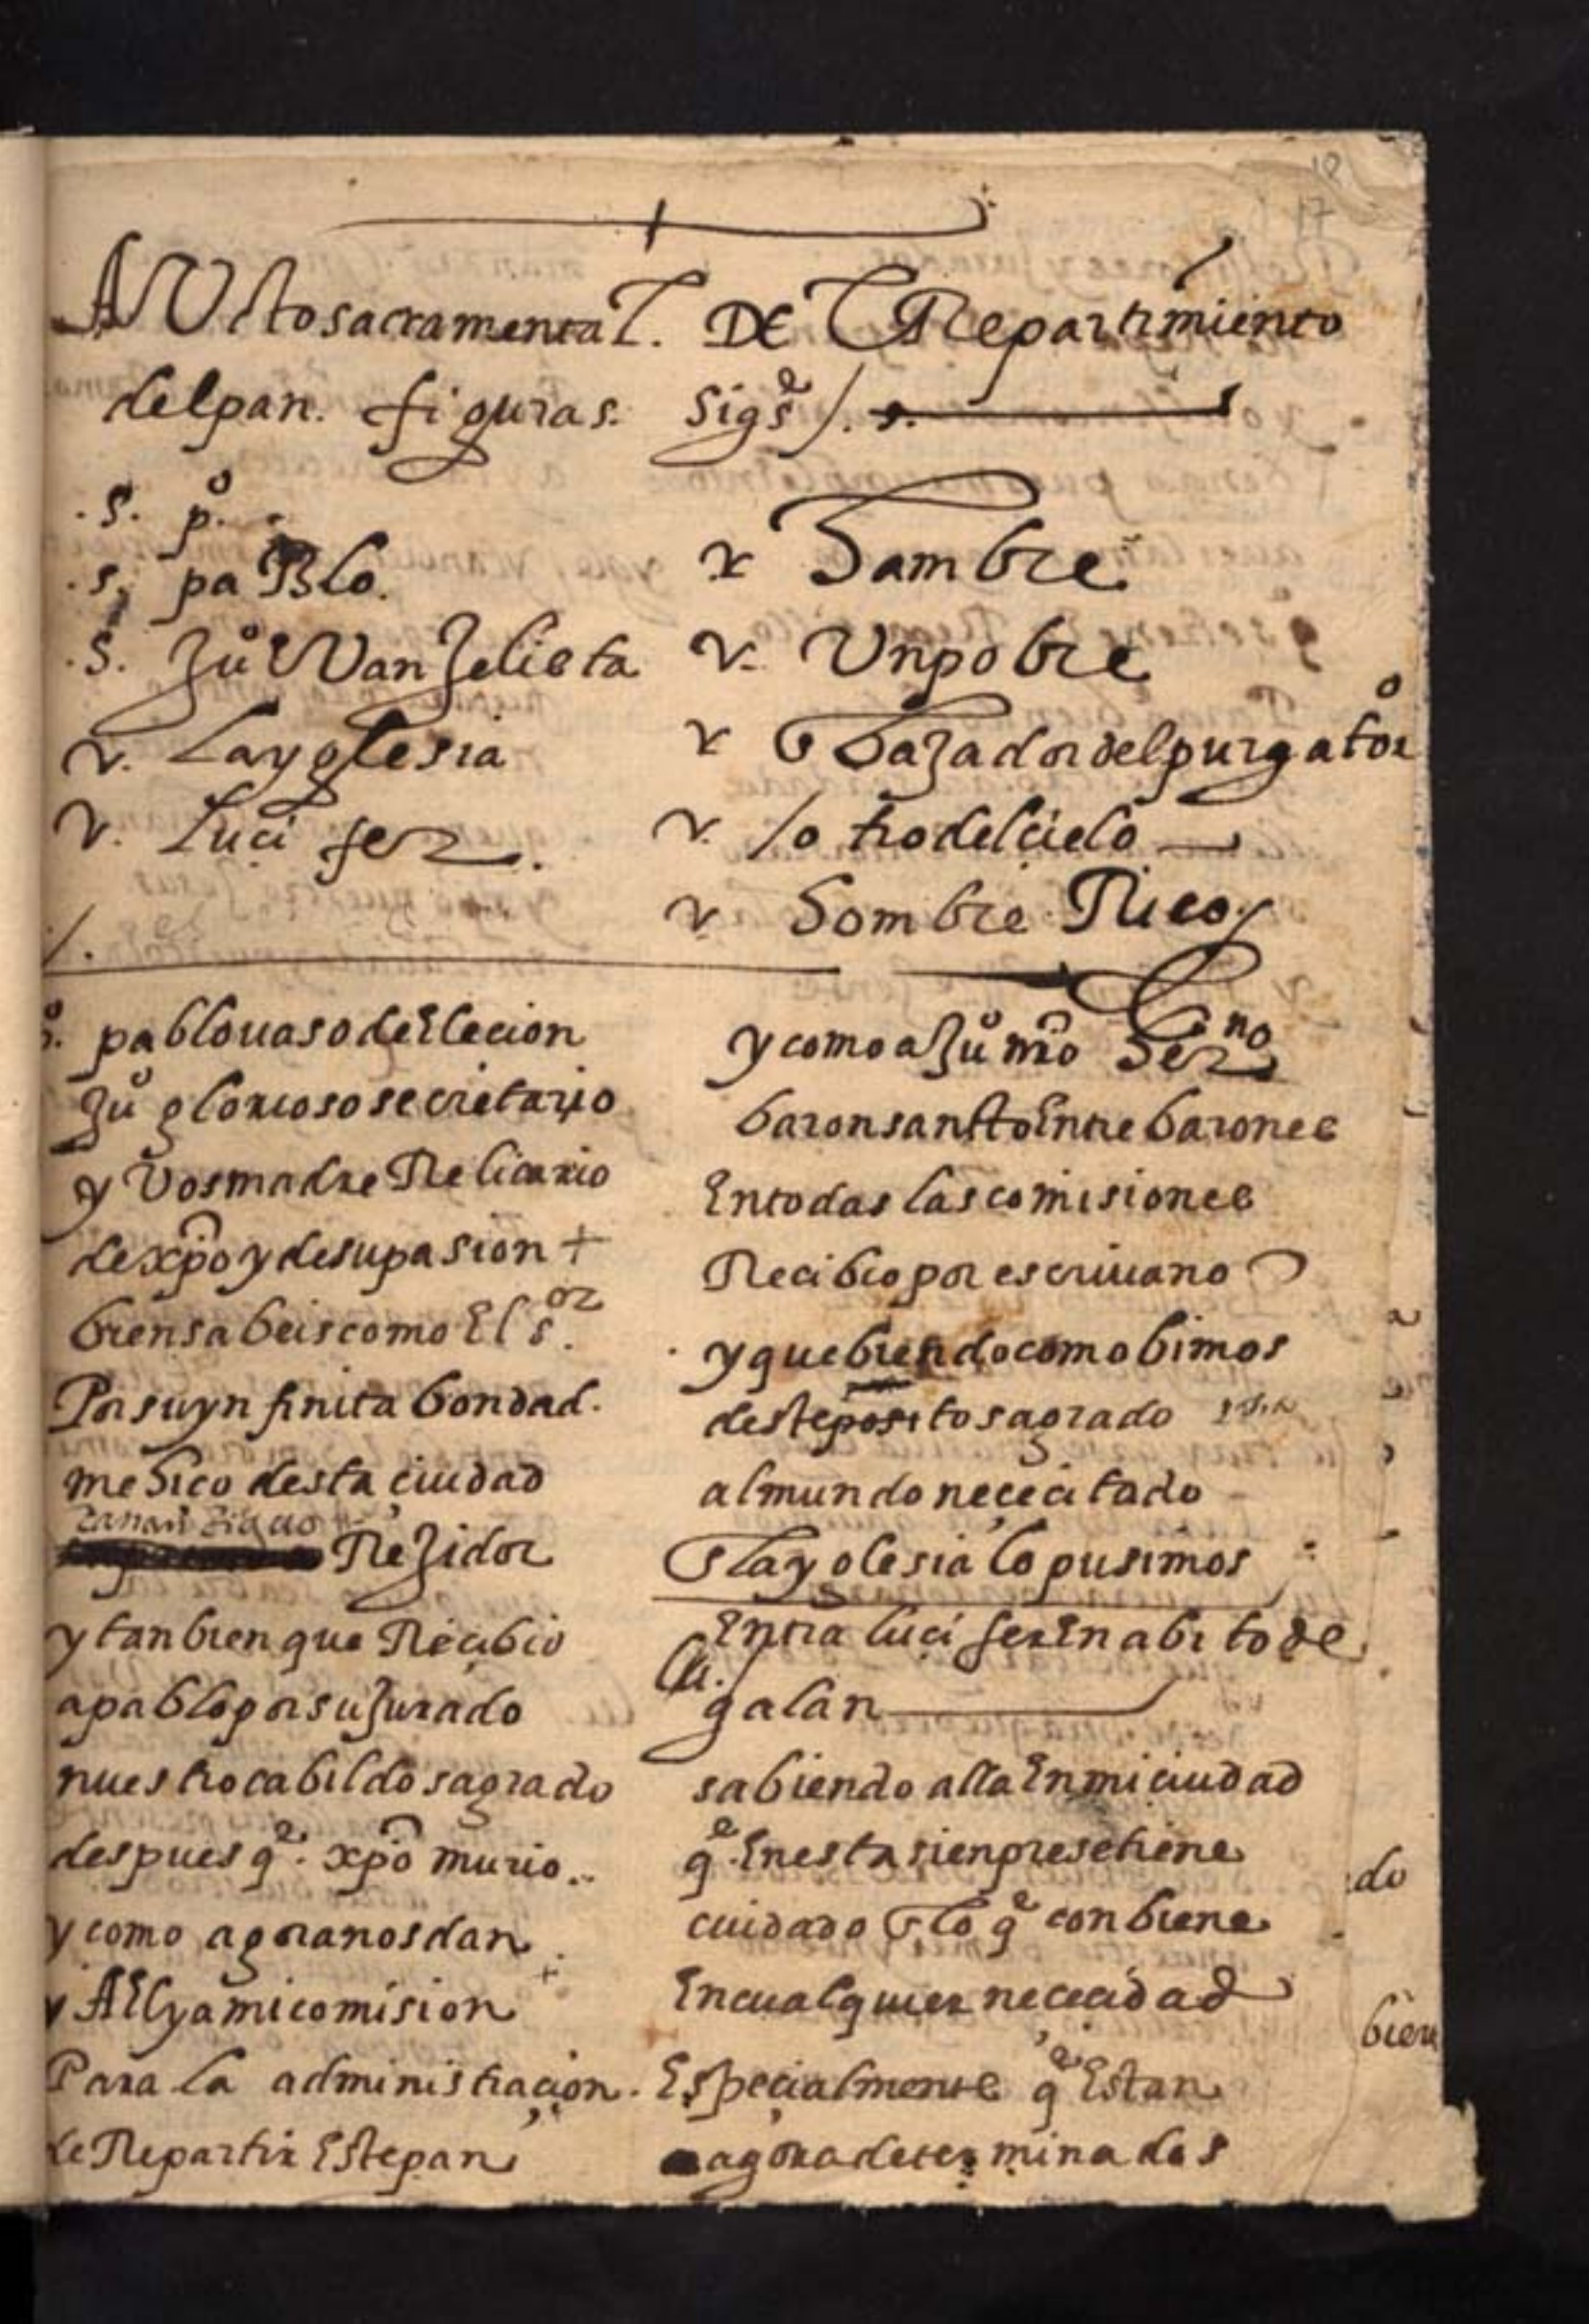 18
17
AVcto sacramental. DE el Repartimiento
del pan. figuras. sigs.
.s. po.
.s. paBlo.
.s. Juo eVanJelista
v. La yglesia
v. Luci fer.
v hambre
v. Vn pobre
v el trazador del purgator
v. /o tro del cielo
v. hombre Rico
s. pablo uaso de Elecion
Juo glorioso secretario
y Vos madre Relicario
de xpo y de su pasion +
bien sabeis como El sor.
Por su ynfinita bondad.
me hico desta ciudad
Rejidor
y tanbien que Recibio
a pablo por su Jurado
nuestro cabildo sagrado
despues qe. xpo murio..
y como agora nos dan
y A El y a mi comision +
Para la administracion.
de Repartir Este pan
y como a Juo mio herno
baron santto Entre barones
En todas las comisiones
Recibio por escriuano
y que biendo como bimos
deste posito sagrado
al mundo nececitado
El a yglesia lo pusimos
Entra luci fer En abito de
lu. galan
sabiendo alla En mi ciudad
qe. En esta sienpre se tiene
cuidado El lo qe conbiene
En cualquier nececidad
Especialmente qe Estan
agora determinados
do
bien